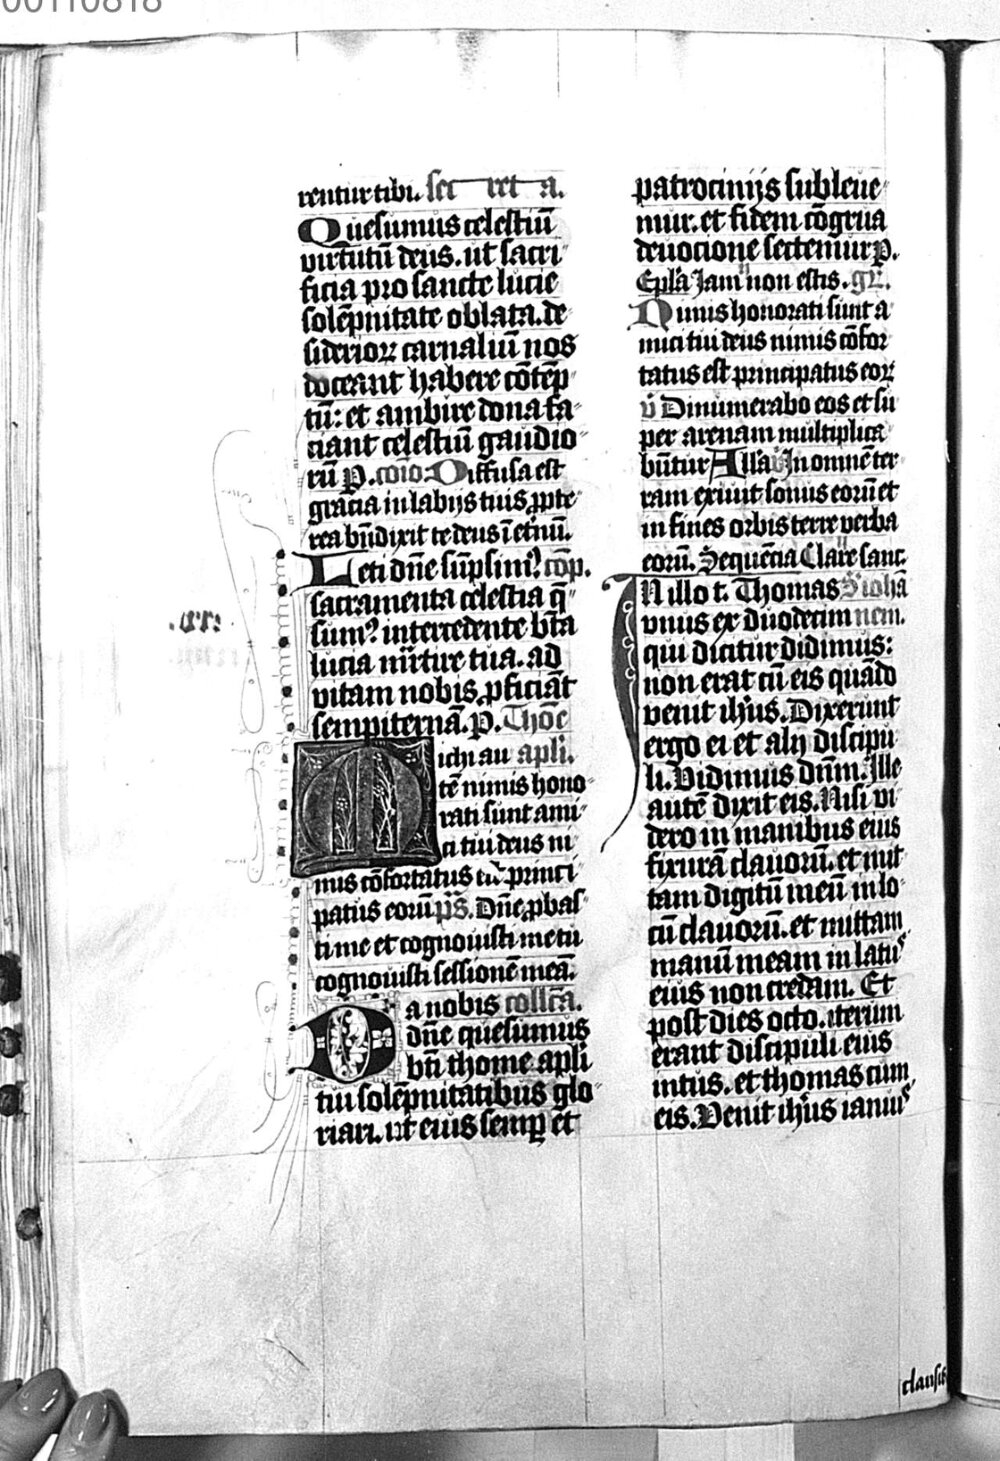 00110818
rentur tibi. sec ret a.
Quesumus celestiū
virtutū deus. ut sacri
ficia pro sancte lucie
solēpnitate oblata. de
siderioꝝ carnaliū nos
doceant habere cōtēp
tū: et ambire dona fa
ciant celestiū gaudio
rū P. cōio Diffusa est
gracia in labijs tuis ꝓpte
rea bn̄dixit te deus ī etnū.
Leti dn̄e sūpsim⁹ cōp.
sacramenta celestia q̄
sum⁹ intercedente bt̄a
lucia mr̄tire tua. ad
vitam nobis ꝓficiāt
sempiternā. P. Thōe
Michi au apl̄i.
tē nimis hono
rati sunt ami
ci tui deus ni
mis cōfortatus ē princi
patus eorū p̄s. Dn̄e ꝓbas
ti me et cognouisti me tu
cognouisti sessionē meā.
Da nobis coll̄cā.
dn̄e quesumus
bt̄i thome apl̄i
tui solēpnitatibus glo
riari. ut eius semꝑ et
patrocinijs subleue
mur. et fidem cōgrua
deuocione sectemur P.
Epl̄a Jam non estis. gr̄.
Nimis honorati sunt a
mici tui deus nimis cōfor
tatus est principatus eoꝝ
v̄ Dinumerabo eos et su
per arenam multiplica
būtur All̄a v̄ In omnē ter
ram exiuit sonus eorū et
in fines orbis terre verba
eorū. Sequēcia Clare sanc.
In illo t. Thomas S iohā
vnus ex duodecim nem.
qui dicitur didimus:
non erat cū eis quādo
venit ih̄us. Dixerunt
ergo ei et alij discipu
li. Vidimus dn̄m. Ille
autē dixit eis. Nisi vi
dero in manibus eius
fixurā clauorū. et mit
tam digitū meū in lo
cū clauorū. et mittam
manū meam in latꝰ
eius non credam. Et
post dies octo. iterum
erant discipuli eius
intus. et thomas cum
eis. Venit ih̄us ianuꝰ
clausis